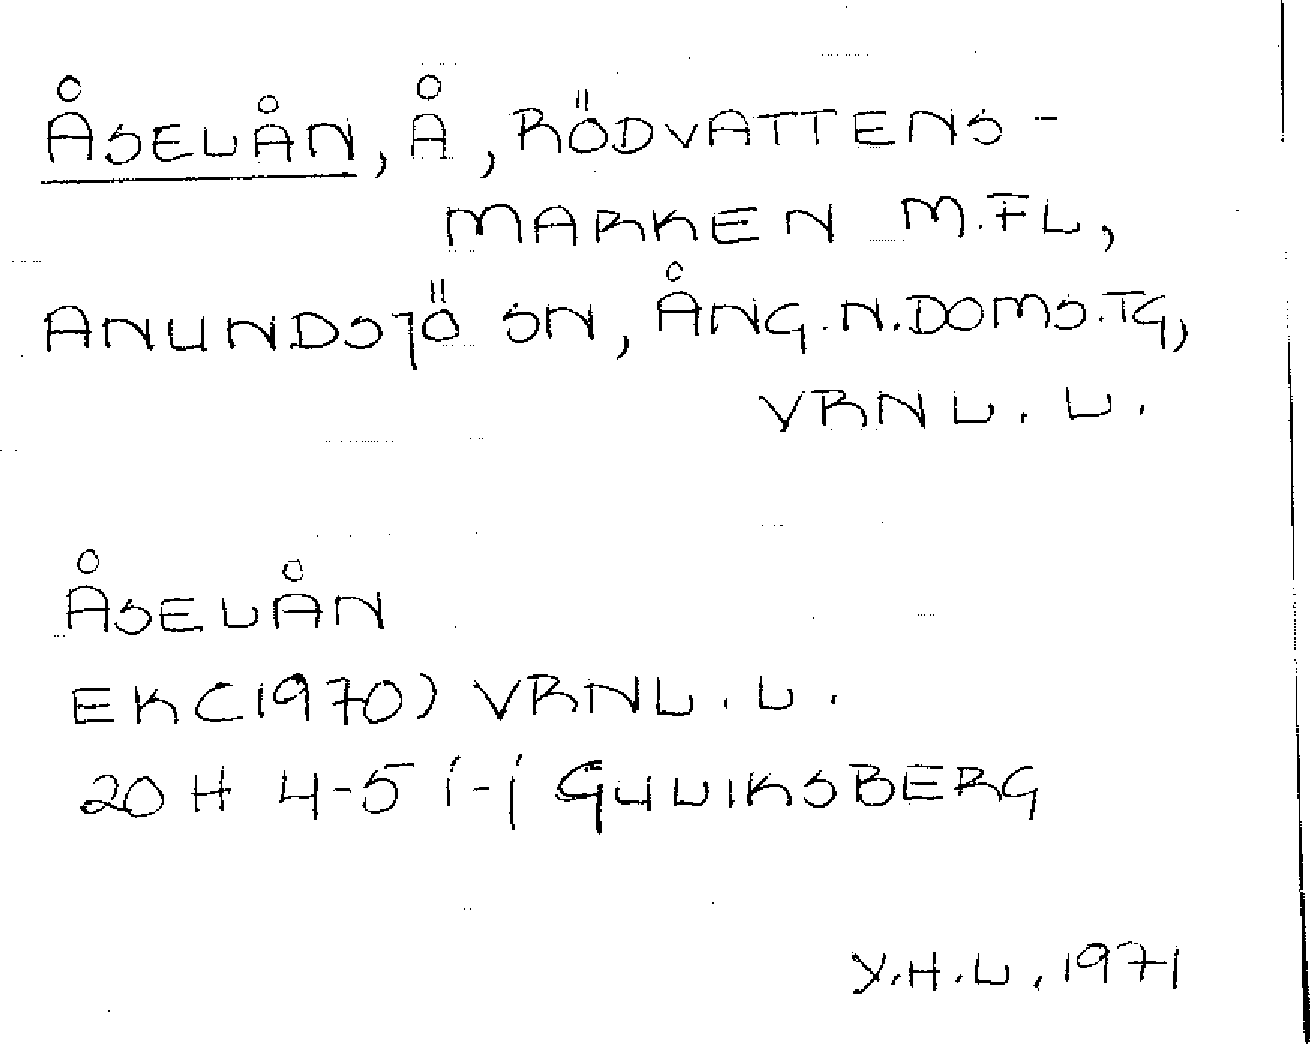 ÅSELÅN, Å, RÖDVATTENS-
MARKEN M.FL,
ANUNDSJÖ SN, ÅNG.N.DOMS.TG,
VRNL.L.
ÅSELÅN
EK(1970) VRNL.L.
20 H 4-5 i-j GULIKSBERG
Y.H.L, 1971